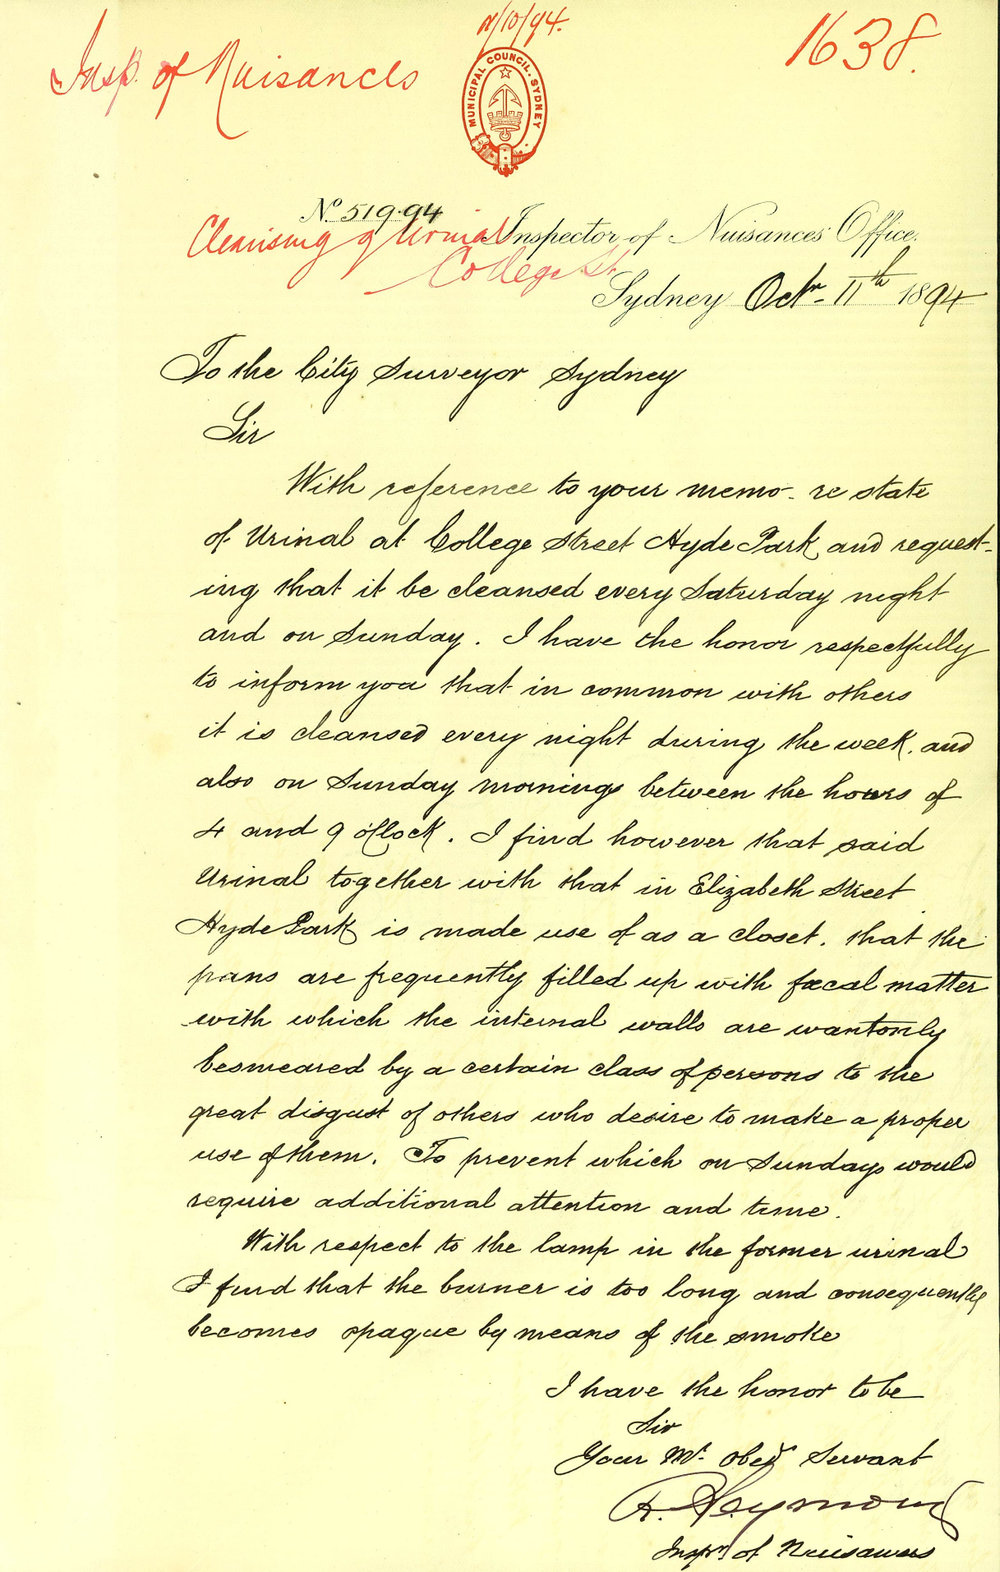 11/10/94.
1638.
Insp. of Nuisances
MUNICIPAL COUNCIL. SYDNEY
No. 519.94
Inspector of Nuisances Office.
Cleansing of Urinal
College St.
Sydney Octr. 11th 1894
To the City Surveyor Sydney
Sir
With reference to your memo. re state
of Urinal at College Street Hyde Park and request-
ing that it be cleansed every Saturday night
and on Sunday. I have the honor respectfully
to inform you that in common with others
it is cleansed every night during the week. and
also on Sunday mornings between the hours of
4 and 9 o'Clock. I find however that said
Urinal together with that in Elizabeth Street
Hyde Park is made use of as a closet. that the
pans are frequently filled up with fœcal matter
with which the internal walls are wantonly
besmeared by a certain class of persons to the
great disgust of others who desire to make a proper
use of them. To prevent which on Sundays would
require additional attention and time.
With respect to the lamp in the former urinal
I find that the burner is too long and consequently
becomes opaque by means of the smoke
I have the honor to be
Sir
Your Mt. obedt. Servant
R. Seymour
Inspr. of Nuisances